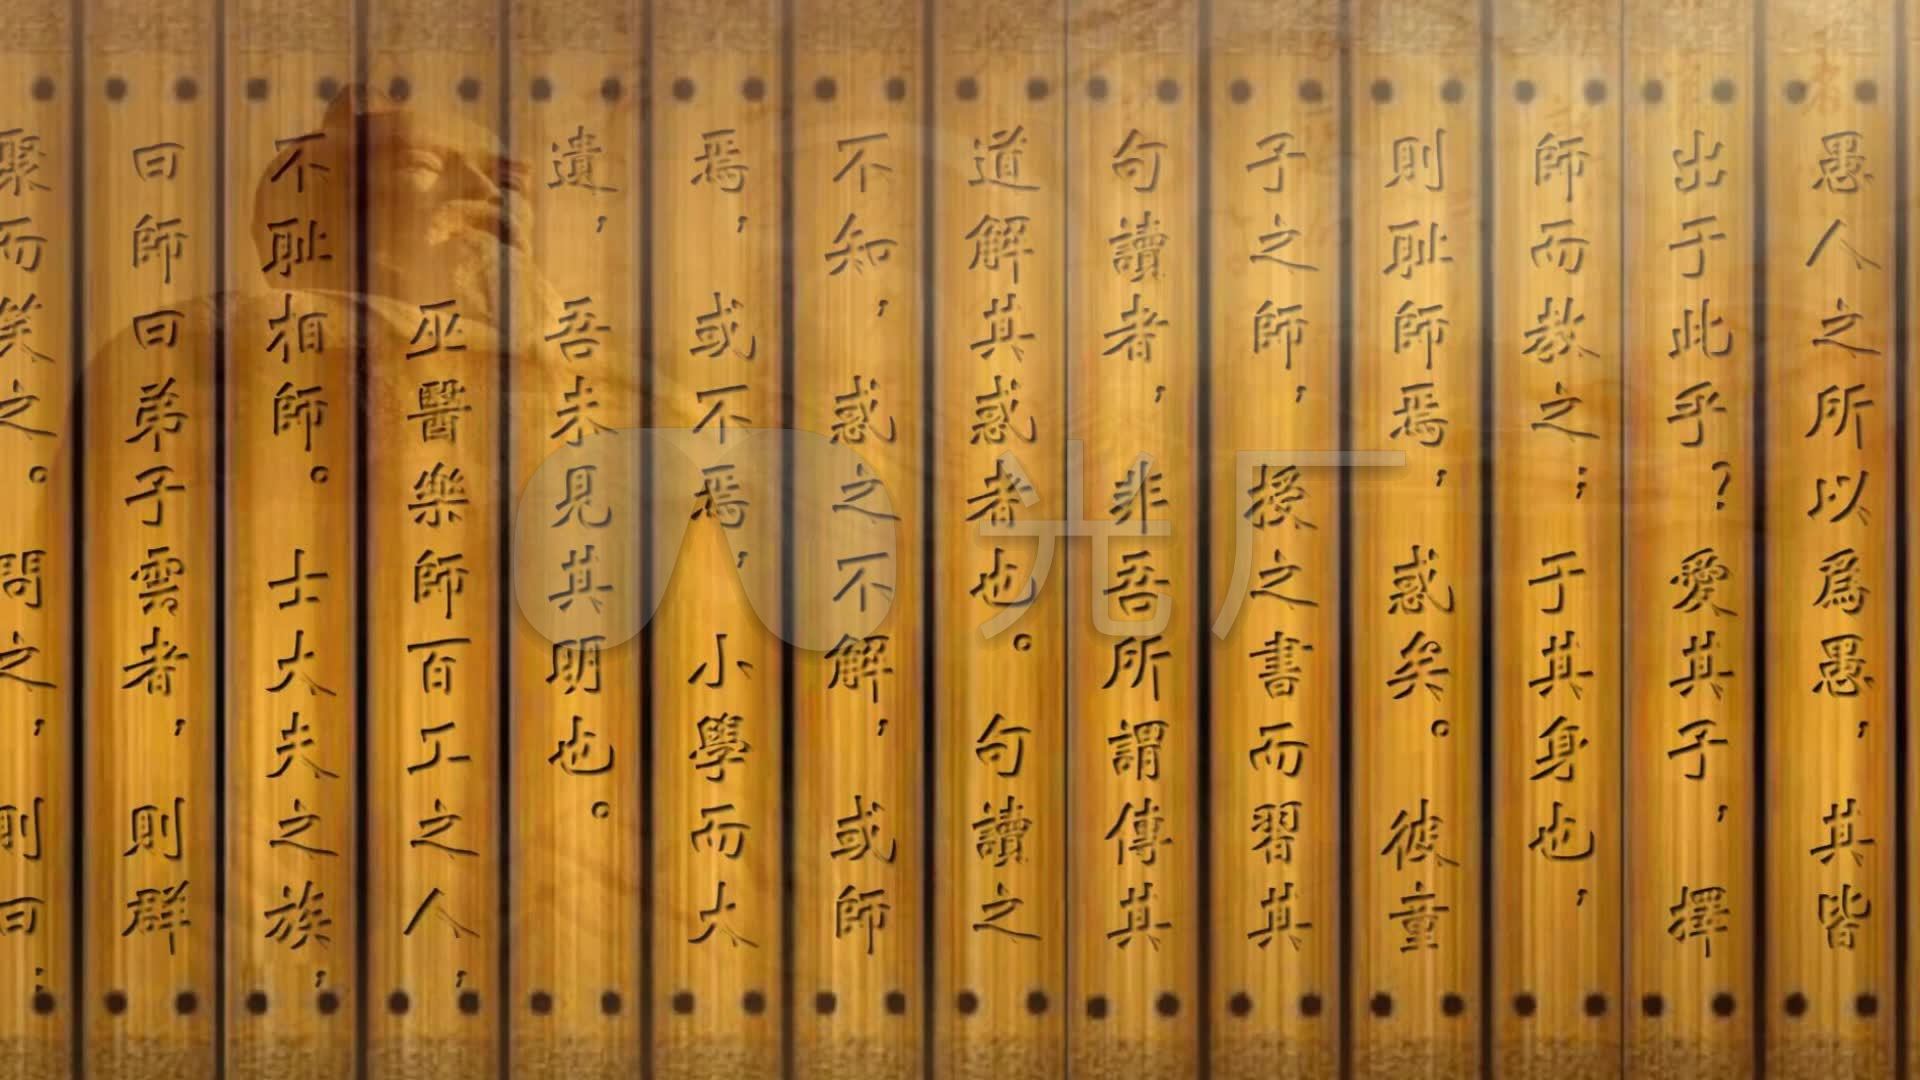 愚人之所以爲愚，其皆
出于此乎？愛其子，擇
師而教之；于其身也，
則耻師焉，惑矣。彼童
子之師，授之書而習其
句讀者，非吾所謂傳其
道解其惑者也。句讀之
不知，惑之不解，或師
焉，或不焉，小學而大
遺，吾未見其明也。
巫醫樂師百工之人，
不耻相師。士大夫之族，
曰師曰弟子雲者，則群
聚而笑之。問之，則曰：
光厂